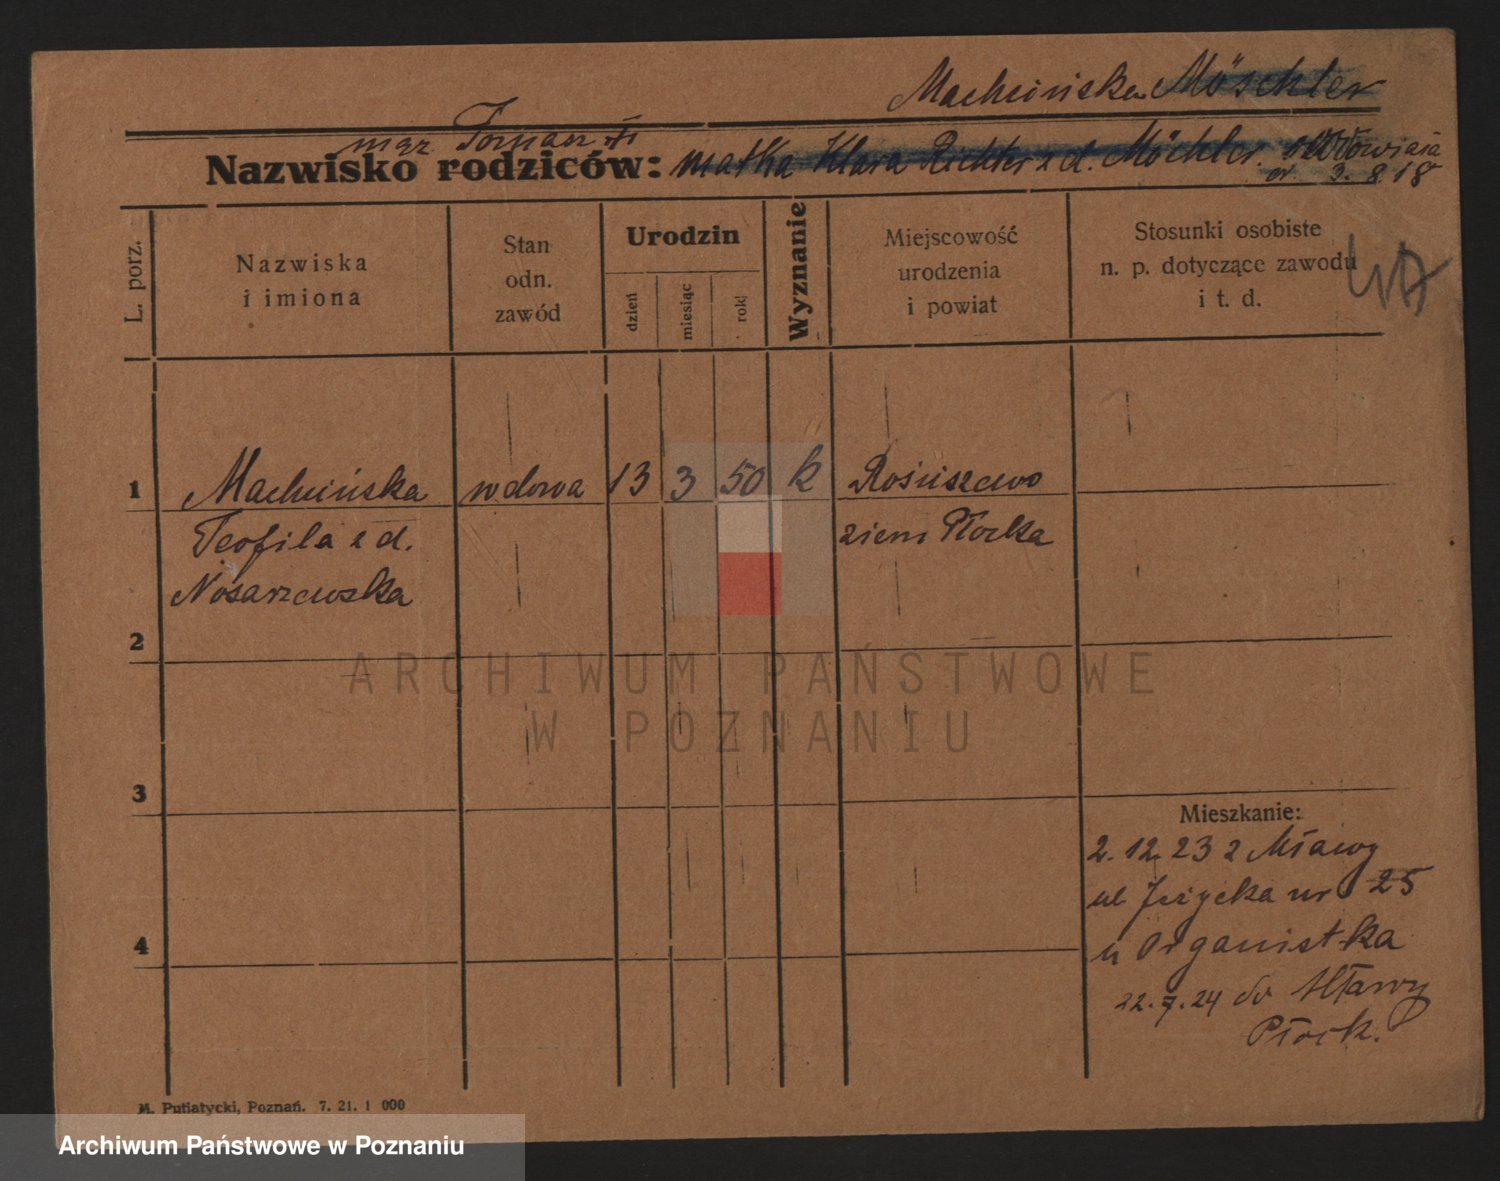 Machcińska Möschler
mąż Tomasz †
Nazwisko rodziców: matka Klara Richter z d. Möchler
3. 8. 18
L. porz.
Nazwiska
i imiona
Stan
odn.
zawód
Urodzin
dzień
miesiąc
rok
Wyznanie
Miejscowość
urodzenia
i powiat
Stosunki osobiste
n. p. dotyczące zawodu
i t. d.
1 Machcińska wdowa 13 3 50 k Rościszewo
Teofila z d. ziem Płocka
Nosarzewska
2
3
4
Mieszkanie:
2. 12. 23 z Mławy
ul Jeżycka nr 25
u Organistka
22. 7. 24 do Mławy
Płock.
M. Putiatycki, Poznań. 7. 21. 1 000
ARCHIWUM PAŃSTWOWE
W POZNANIU
Archiwum Państwowe w Poznaniu